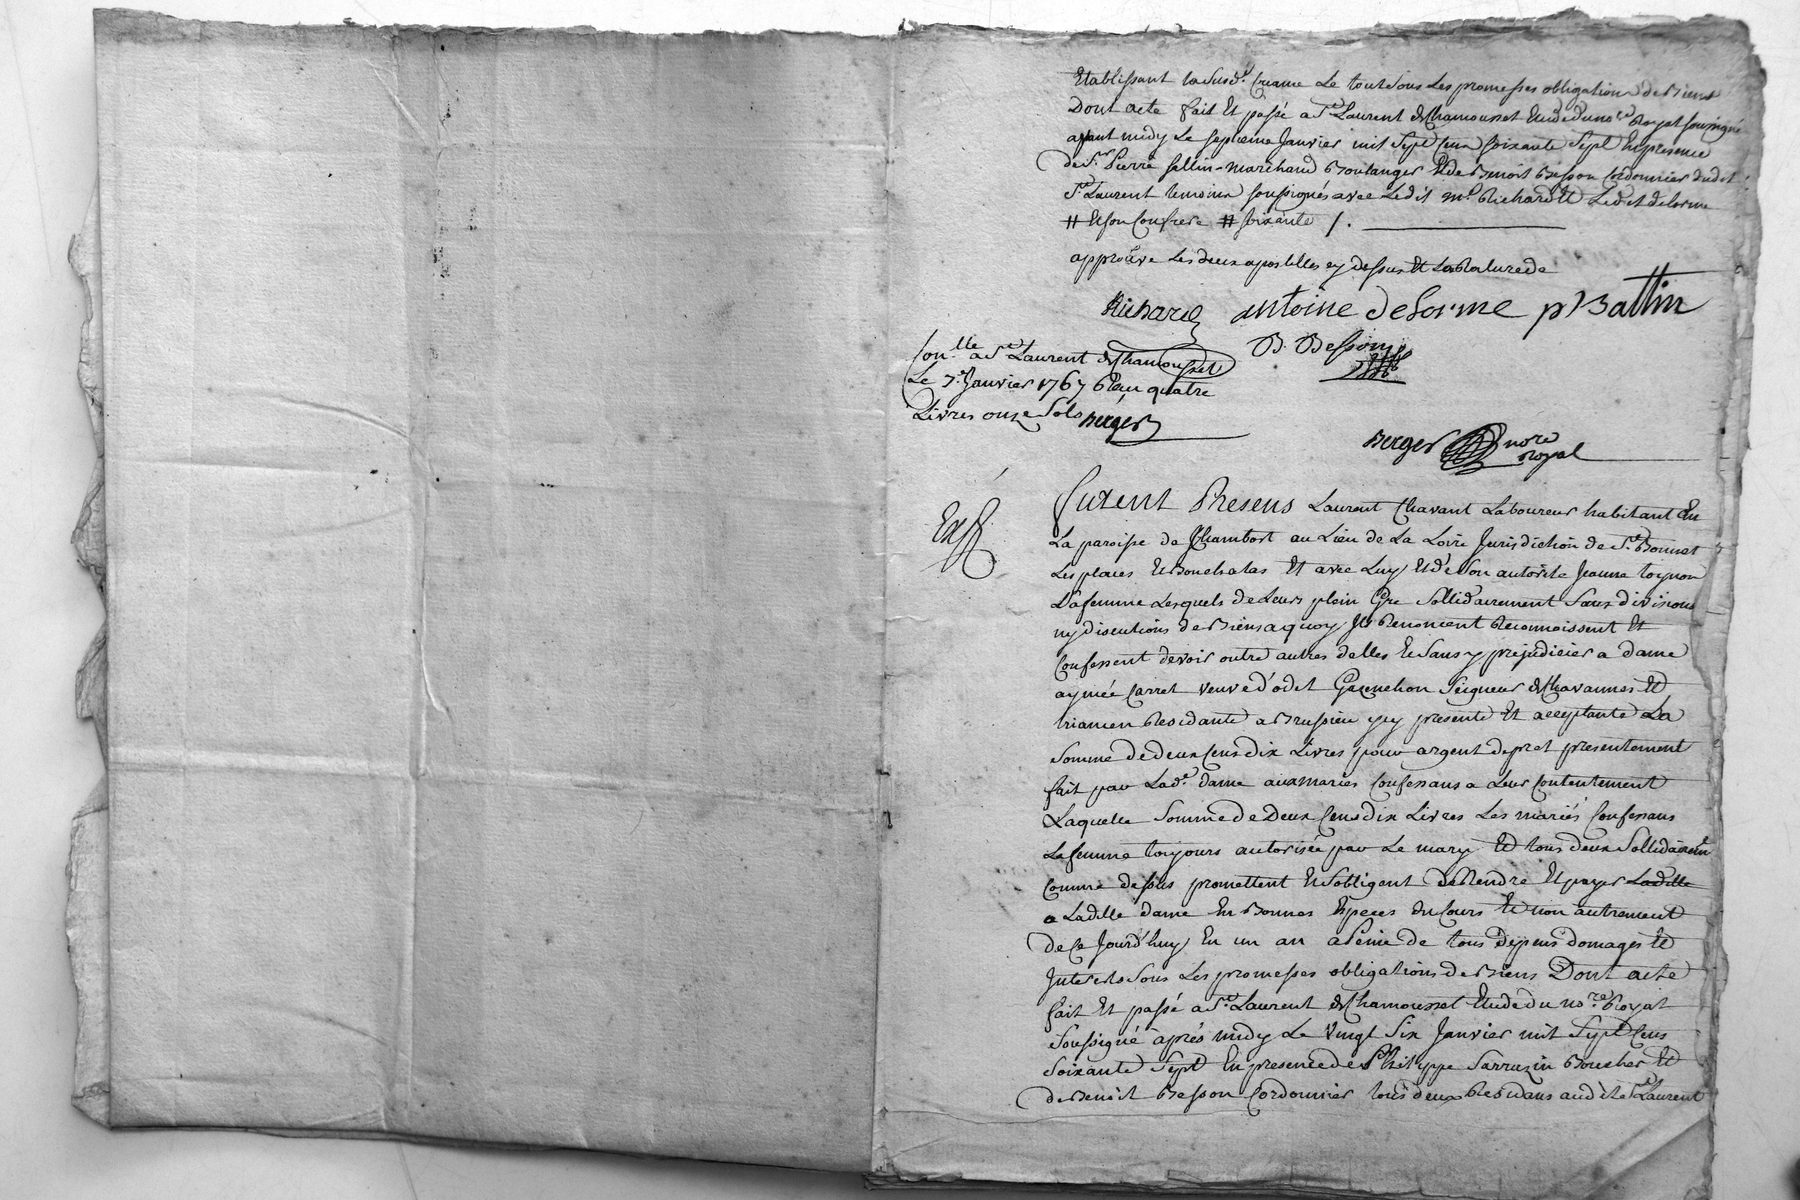 Etablissant la susd.e creance Le tout sous Les promesses obligations de Biens
Dont acte fait Et passé a S.t Laurent de Chamousset Etude du no.re Royal soussigné
avant midy Le septieme Janvier mil sept cens soixante sept En presence
de S.r Pierre Marchand Boulanger Et de Benoit Besson Cordonnier dudit
S.t Laurent temoins soussignés avec Ledit m.e Richard Et Ledit delorme
# Et son Confrere # soixante /.
approuve Les deux apostilles cy dessus Et La Rature de
Richard antoine delorme p Battin
B. Besson
Con.lle a S.t Laurent de Chamousset
Le 7.e Janvier 1767 Reçu quatre
Livres onze Sols Berger
Berger nore
Royal
Exp
furent Presens Laurent Chavant Laboureur habitant En
La paroisse de Chambost au Lieu de La Loire Jurisdiction de S.t Bonnet
Les places Et Souchalas Et avec Luy Et de Son autorité Jeanne
Sa femme Lesquels de Leurs plein Gre Sollidairement Sans divisions
ny discutions de Biens a quoy Ils Renoncent Reconnoissent Et
Confessent devoir outre autres debtes Et Sans y prejudicier a dame
aymée Carret veuve d'odet Guenchon Seigneur de Chavannes Et
Residante a Brussieu ycy presente Et acceptante La
Somme de deux Cens dix Livres pour argent de pret presentement
fait par Lad.e dame aux mariés Confessans a Leur Contentement
Laquelle Somme de Deux Cens dix Livres Les mariés Confessans
La femme toujours autorisée par Le mary Et tous deux Sollidairem
Comme dessus promettent Et S'obligent de Rendre Et payer Ladtte
a Ladtte dame En Bonnes Especes du Cours Et non autrement
de Ce Jourd'huy En un an a Peine de tous depens domages Et
Interets Sous Les promesses obligations de Biens Dont acte
fait Et passé a S.t Laurent de Chamousset Etude du no.re Royal
Soussigné après midy Le vingt Six Janvier mil Sept Cens
Soixante Sept En presence de Philippe Sarrazin Boucher Et
de Benoit Besson Cordonnier tous deux Residans audit S.t Laurent